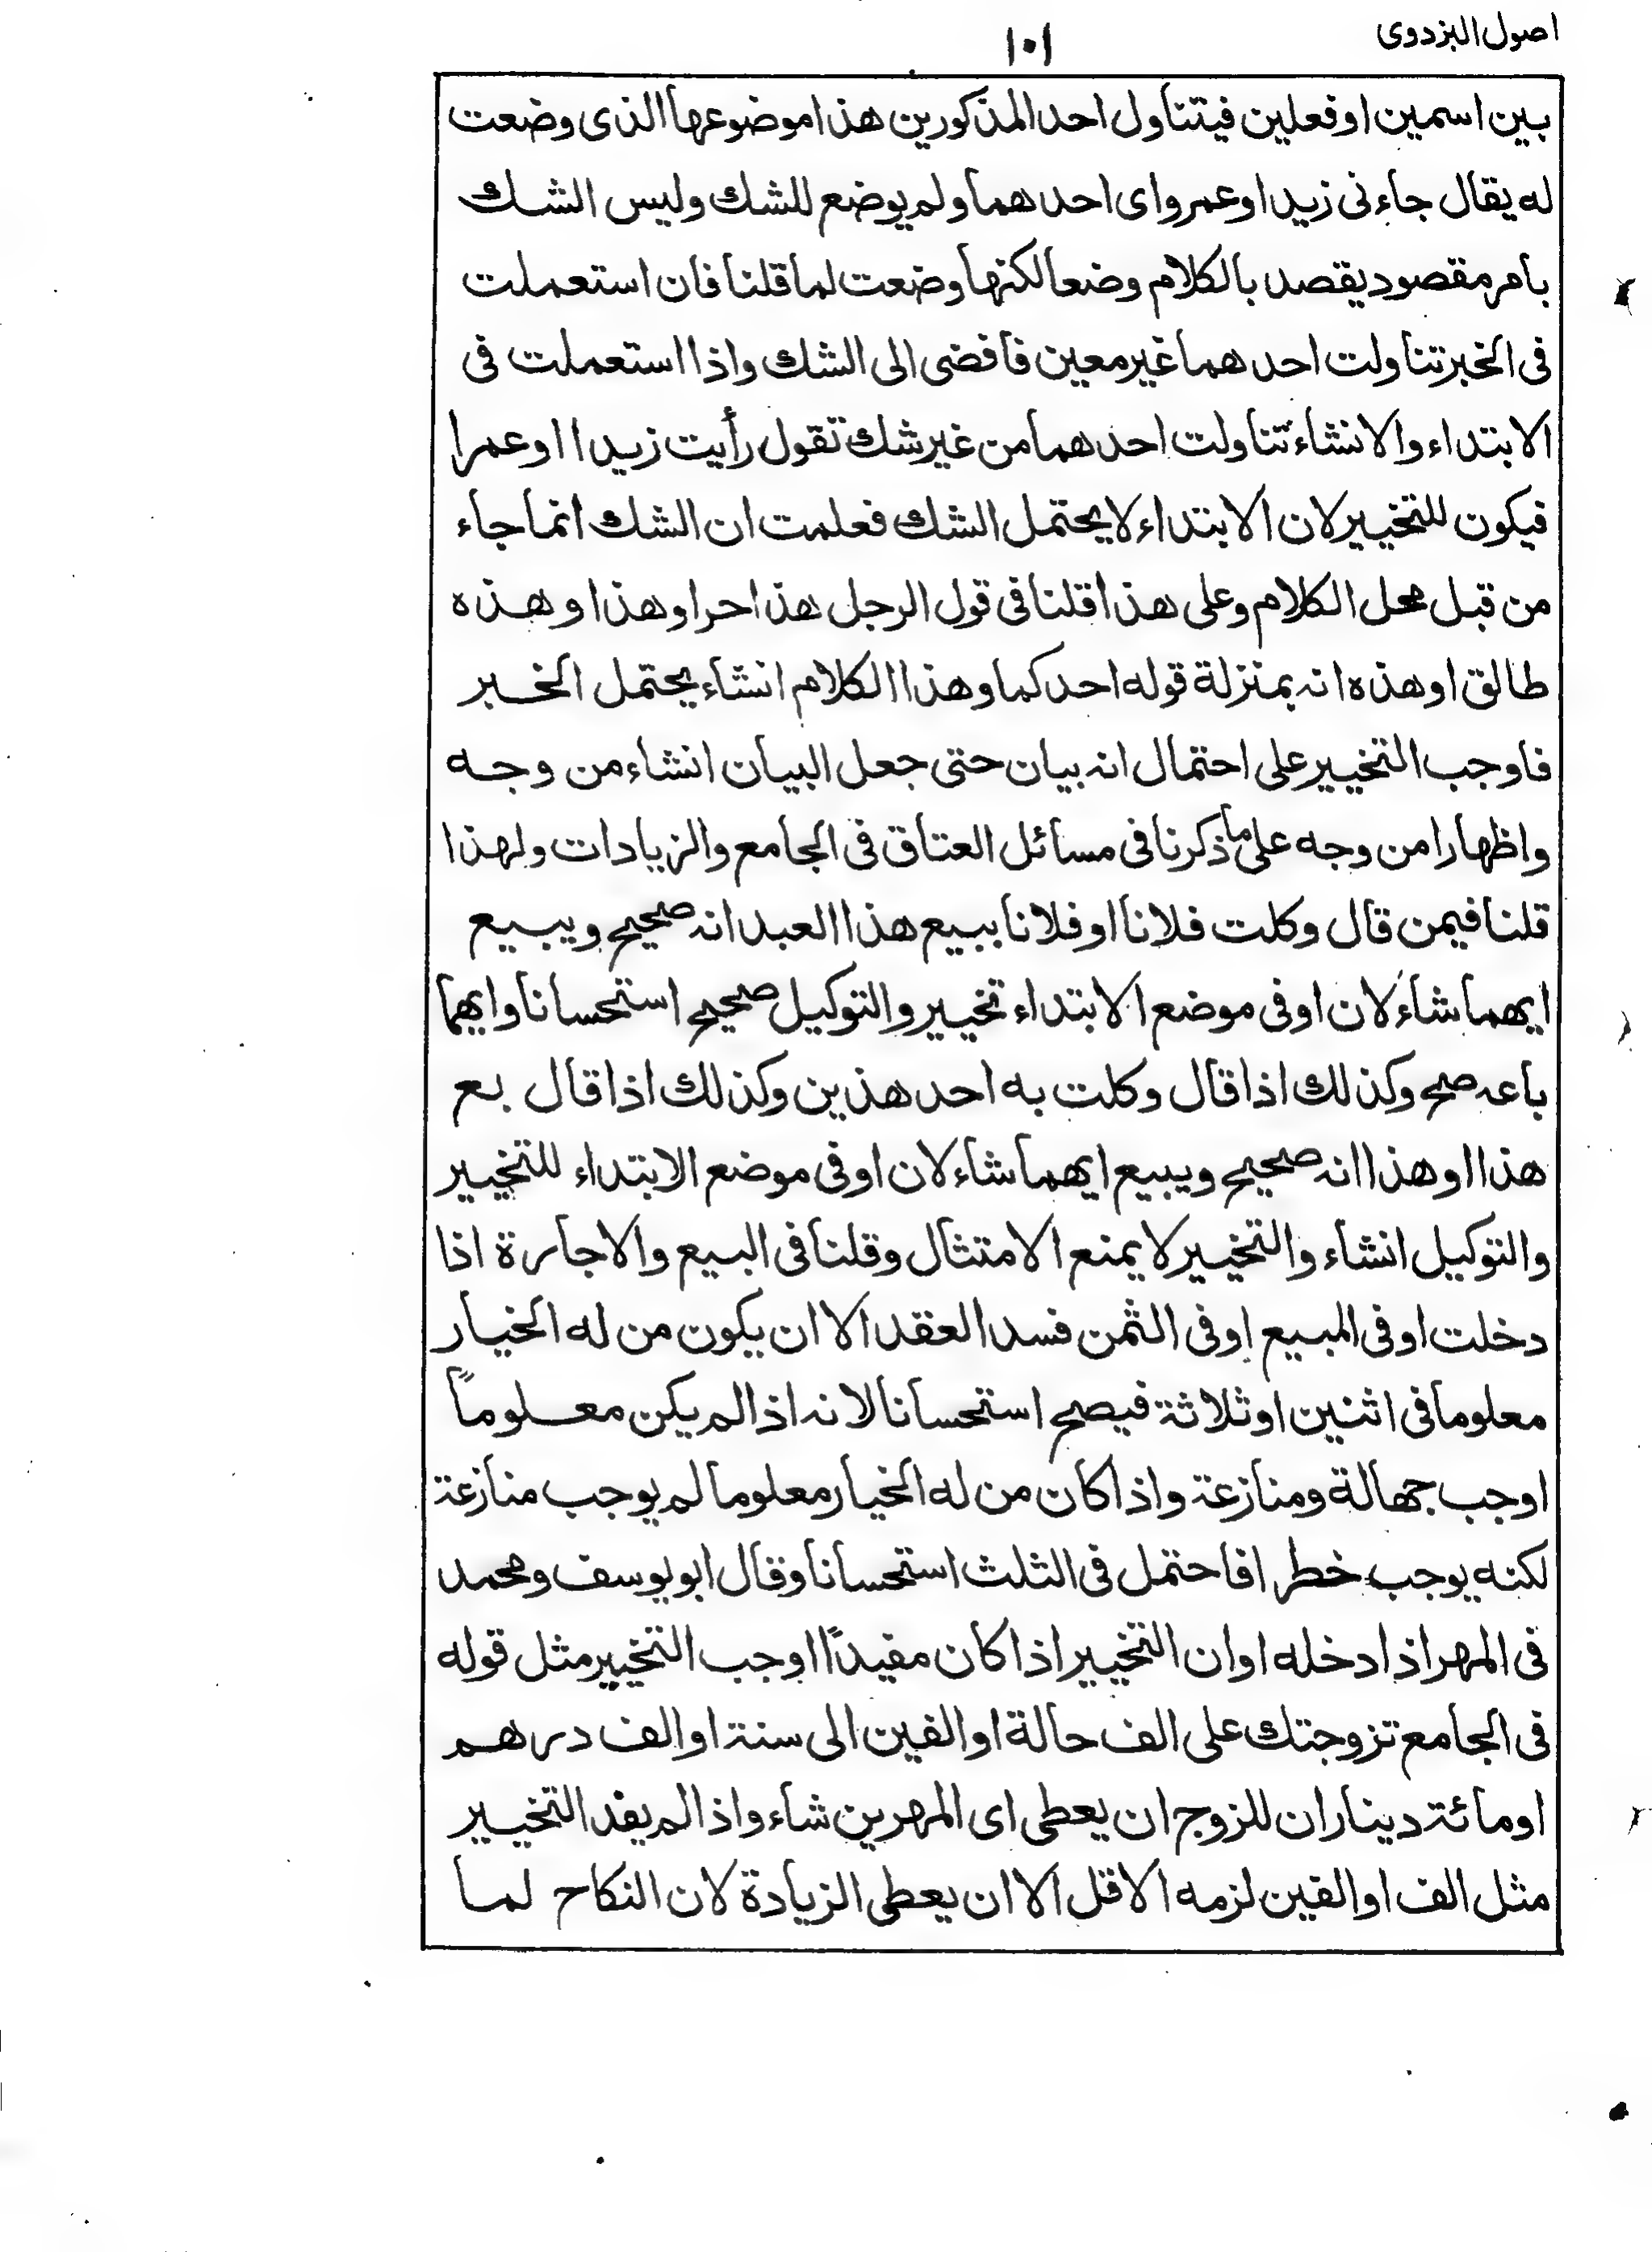 اصول البزدوی
١٠١
بين اسمين او فعلين فيتناول احد المذكورين هذا موضوعها الذى وضعت
له يقال جاءنى زيد او عمرو اى احدهما ولم يوضع للشك وليس الشك
بامر مقصود يقصد بالكلام وضعا لكنها وضعت لما قلنا فان استعملت
فى الخبر تناولت احدهما غير معين فافضى الى الشك واذا استعملت فى
الابتداء والانشاء تناولت احدهما من غير شك تقول رأيت زيدا او عمرا
فيكون للتخيير لان الابتداء لا يحتمل الشك فعلمت ان الشك انما جاء
من قبل محل الكلام وعلى هذا قلنا فى قول الرجل هذا حر او هذا وهذه
طالق او هذه انه بمنزلة قوله احدكما وهذا الكلام انشاء يحتمل الخبر
فاوجب التخيير على احتمال انه بيان حتى جعل البيان انشاء من وجه
واظهارا من وجه على ما ذكرنا فى مسائل العتاق فى الجامع والزيادات ولهذا
قلنا فيمن قال وكلت فلانا او فلانا ببيع هذا العبد انه صحيح ويبيع
ايهما شاء لان او فى موضع الابتداء تخيير والتوكيل صحيح استحسانا وايهما
باعه صح وكذلك اذا قال وكلت به احد هذين وكذلك اذا قال بع
هذا او هذا انه صحيح ويبيع ايهما شاء لان او فى موضع الابتداء للتخيير
والتوكيل انشاء والتخيير لا يمنع الامتثال وقلنا فى البيع والاجارة اذا
دخلت او فى المبيع او فى الثمن فسد العقد الا ان يكون من له الخيار
معلوما فى اثنين او ثلاثة فيصح استحسانا لانه اذا لم يكن معلوماً
اوجب جهالة ومنازعة واذا كان من له الخيار معلوما لم يوجب منازعة
لكنه يوجب خطرا فاحتمل فى الثلث استحسانا وقال ابو يوسف ومحمد
فى المهر اذا دخله او ان التخيير اذا كان مفيداً اوجب التخيير مثل قوله
فى الجامع تزوجتك على الف حالة او الفين الى سنة او الف درهم
او مائة دينار ان للزوج ان يعطى اى المهرين شاء واذا لم يفد التخيير
مثل الف او الفين لزمه الاقل الا ان يعطى الزيادة لان النكاح لما